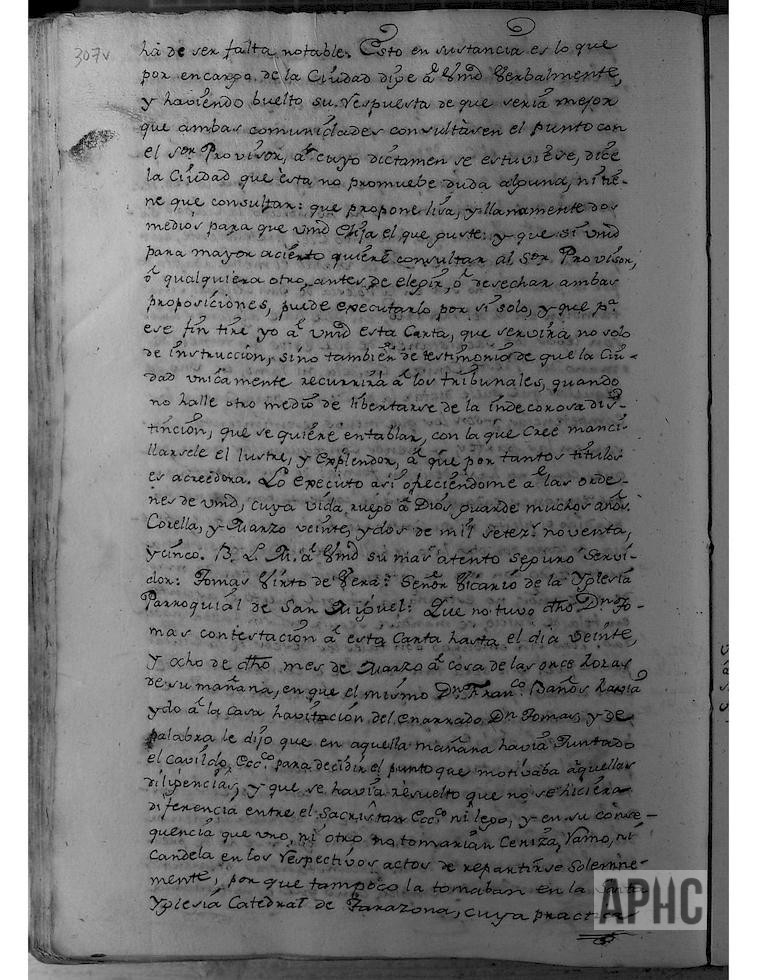 307v
há de ser falta notable. Esto en sustancia es lo que
por encargo de la Ciudad dije â Vmd Verbalmente,
y haviendo buelto su respuesta de que sería mejor
que ambas comunidades consultàsen el punto con
el Sor Provisor, â cuyo dictamen se estuviese, dice
la Ciudad que ésta no promuebe duda alguna, ni tie-
ne que consultar: que propone lisa, y llanamente dos
medios para que Vmd elija el que guste: y que si Vmd
para mayor acierto quiere consultar al Sor Provisor,
ô qualquiera otro, antes de elegir, ô desechar ambas
proposiciones, puede executarlo por si solo, y que pa
ese fin tire yo â Vmd esta Carta, que servirá no solo
de Instruccion, sino tambien de testimonio de que la Ciu-
dad unicamente recurrirá â los tribunales, quando
no halle otro medio de libertarse de la indecorosa dis-
tincion, que se quiere entablar, con la que cree manci-
llarsele el lustre, y explendor, â que por tantos titulos
es acreedora. Lo executo asi ofreciendome â las orde-
nes de Vmd, cuya vida ruego â Dios guarde muchos años.
Corella, y Marzo veinte, y dos de mil seters noventa,
y cinco. B. L. M. â Vmd su mas atento seguro Servi-
dor: Tomas Virto de Vera: Señor Vicario de la Yglesia
Parroquial de San Miguel: Que no tuvo dho Dn To-
mas contestacion â esta Carta hasta el dia veinte,
y ocho de dho mes de Marzo â cosa de las once horas
de su mañana, en que el mismo Dn Franco Baños havia
ydo â la Casa havitación del enarrado Dn Tomas, y de
palabra le dijo que en aquella mañana havia Juntado
el Cavildo Eccco para decidir el punto que motivaba aquellas
diligencias, y que se havia resuelto que no se hiciera
diferencia entre el Sacristan Eccco ni lego, y en su conse-
quencia que uno, ni otro no tomarían Ceniza, Ramo, ni
Candela en los respectivos actos de repartirse Solemne-
mente, por que tampoco la tomaban en la Santa
Yglesia Catedral de Tarazona, cuya practica
APHC